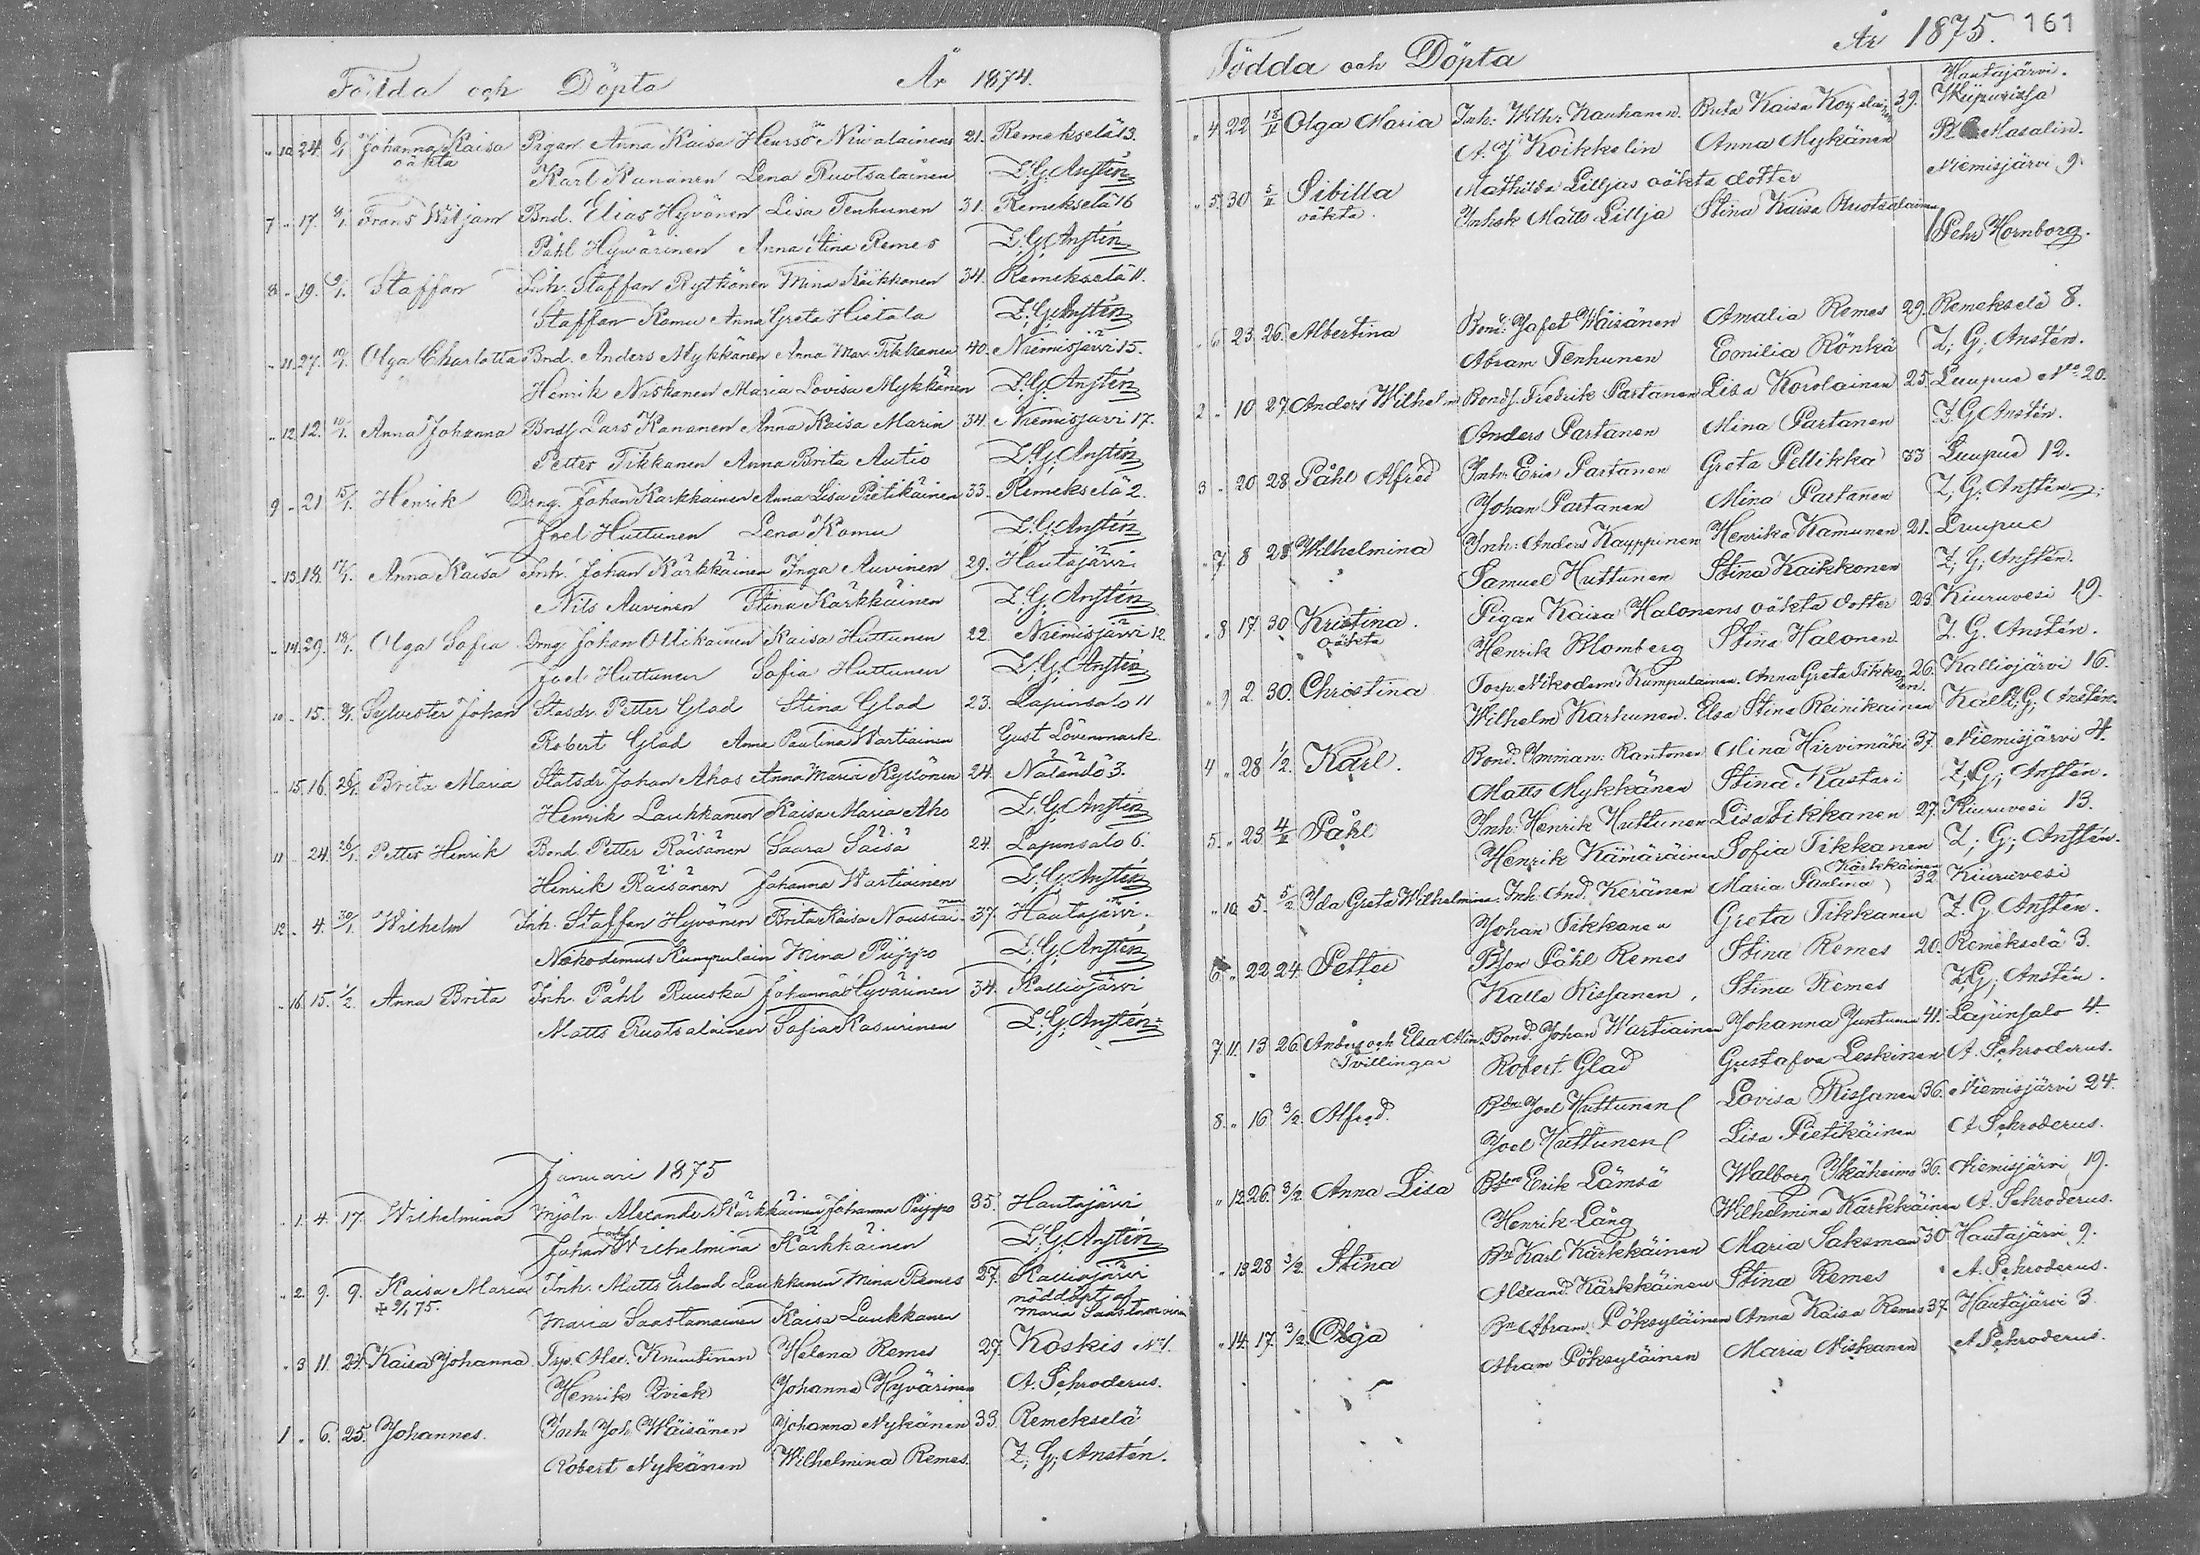 Födda och Döpta År 1874.
" 10 24 6/1 Johanna Kaisa Pigan Anna Kaisa Niwalainens 21. Remekselä 13.
oäkta Karl Kananen Lena Ruotsalainen Z. G. Anstén
7 " 17. 9/1 Frans Wiljam Bnd. Elias Hyvönen Lisa Tenhunen 31. Remekselä 16
Påhl Hyvärinen Anna Stina Remes Z. G. Anstén
8 " 19. 9/1. Staffan Inh. Staffan Rytkönen Mina Kaikkonen 34. Remekselä 11.
Staffan Komu Anna Greta Hietala Z. G. Anstén
" 11. 27. 10/1. Olga Charlotta Bnd. Anders Mykkänen Anna Mar. Tikkanen 40. Niemisjärvi 15.
Henrik Niskanen Maria Lovisa Mykkänen Z. G. Anstén
" 12. 12. 10/1. Anna Johanna Bndf Lars Kananen Anna Kaisa Marin 34. Niemisjärvi 17.
Petter Tikkanen Anna Brita Autio Z. G. Anstén
9 " 21 15/1. Henrik Drng. Johan Karkkainen Anna Lisa Pietikäinen 33. Remekselä 2.
Joel Huttunen Lena Komu Z. G. Anstén
" 13. 18. 17/1. Anna Kaisa Inh. Johan Kärkkäinen Inga Auvinen 29. Hautajärvi
Nils Auvinen Stina Kärkkäinen Z. G. Anstén
" 14. 29. 18/1. Olga Sofia Drng Johan Ollikainen Kaisa Huttunen 22. Niemisjärvi 12
Joel Huttunen Sofia Huttunen Z. G. Anstén
10 " 15. Sylvester Johan Stasdr. Petter Glad Stina Glad 23. Lapinsalo 11
Robert Glad Anna Paulina Wartiainen Gust Lövenmark
" 15. 16. 26/1. Brita Maria Statsdr Johan Ahos Anna Maria Kyllönen 24. Näländö 3.
Henrik Laukkanen Kaisa Maria Aho Z. G. Anstén
11 " 24. 26/1. Petter Henrik Bond. Petter Räisänen Saara Säisä 24. Lapinsalo 6.
Henrik Räisänen Johanna Wartiainen Z. G. Anstén
12 " 4. 30/1. Wilhelm Inh. Staffan Hyvönen Brita Kaisa Nousiainen 37. Hautajärvi.
Nikodemus Kumpulain Mina Piippo Z. G. Anstén
" 16. 15. 1/2. Anna Brita Inh. Påhl Ruuska Johanna Hyvärinen 34. Kalliojärvi
Matts Ruotsalainen Sofia Kasurinen Z. G. Anstén
Januari 1875
" 1. 4. 17. Wilhelmina Mjöln. Alexander Kärkkäinen Johanna Piippo 35. Hautajärvi
Johan och Wilhelmina Kärkkäinen Z. G. Anstén
" 2. 9. 9. Kaisa Maria Inh. Matts Erland Laukkanen Mina Remes 27. Kalliojärvi
+ 9/1 75. Maria Saastamoinen Kaisa Laukkanen nöddöpt af Maria Saastamoinen
" 3 11. 24. Kaisa Johanna Trp. Alex. Knuutinen Helena Remes 27. Koskis N:1.
Henrik Kvick Johanna Hyvärinen A. Schroderus.
1 " 6. 25. Johannes. Inh: Joh. Wäisänen Johanna Nykänen 33. Remekselä
Robert Nykänen Wilhelmina Remes. Z. G. Anstén.
Födda och Döpta År 1875. 161
" 4. 22 Olga Maria Inh: Wilh: Kauhanen Brita Kaisa 39. Hautajärvi.
A. J. Koikkelin Anna Mykänen Masalin.
" 5. 30 5/2 Sibilla Mathilda Lilljas oäkta dotter Niemisjärvi 9.
oäkta. Inhsk Matts Lillja Stina Kaisa Ruotsalainen Pehr Hornborg.
" 6 23. 26. Albertina Bond: Jafet Wäisänen Amalia Remes 29. Remekselä 8.
Abram Tenhunen Emilia Rönkä Z. G. Anstén.
2 " 10 27. Anders Wilhelm Bondf. Fredrik Partanen Lisa Korolainen 25. Luupue No 20.
Anders Partanen Mina Partanen Z. G. Anstén.
3 " 20 28. Påhl Alfred Inh: Eric Partanen Greta Pellikka 33 Luupue 12.
Johan Partanen Mina Partanen Z. G. Anstén
" 7 8 28 Wilhelmina Inh: Anders Kauppinen Henrika Kamunen 21. Luupue
Samuel Huttunen Stina Kaikkonen Z. G. Anstén.
" 8 17. 30 Kristina. Pigan Kaisa Halonens oäkta dotter 23. Kiuruvesi 19.
oäkta Henrik Blomberg Stina Halonen Z. G. Anstén.
" 9 2. 30. Christina Torp. Nikodem: Kumpulainen. Anna Greta Tikkanen. 26. Kalliojärvi 16.
Wilhelm Karhunen. Elsa Stina Reinikainen Z. G. Anstén.
4 " 28 1/2. Karl. Bond. Imman: Rantonen Mina Hirvimäki 37. Niemisjärvi 4.
Matts Mykkänen Stina Kastari Z. G. Anstén.
5. " 23 4/2 Påhl Inh: Henrik Huttunen Lisa Tikkanen 27. Kiuruvesi 13.
Henrik Kämäräinen Sofia Tikkanen Z. G. Anstén.
" 10. 5. 5/2 Ida Greta Wilhelmina Inh. And. Keränen Maria Paulina Kärkkäinen 32. Kiuruvesi
Johan Tikkanen Greta Tikkanen Z. G. Anstén.
6 " 22 24. Petter Bson Påhl Remes Stina Remes 20. Remekselä 3.
Kalle Rissanen, Stina Remes Z. G. Anstén.
7. 11. 13 26. Anders och Elsa Min. Bond. Johan Wartiainen Johanna Juntunen 41. Lapinsalo 4.
Tvillingar Robert Glad Gustafva Leskinen A. Schroderus.
8. " 16 3/2 Alfred. Bdn Joel Huttunen Lovisa Rissanen 36. Niemisjärvi 24.
Joel Huttunen Lisa Pietikäinen A. Schroderus.
" 12 26. 3/2. Anna Lisa Bson Erik Lämsä Walborg Ykäheimo 36. Niemisjärvi 19.
Henrik Lång Wilhelmina Kärkkäinen A. Schroderus.
" 13 28 3/2. Stina Bn Karl Kärkkäinen Maria Saksman 30 Hautajärvi 9.
Alexand. Kärkkäinen Stina Remes A. Schroderus.
" 14. 17. 3/2. Olga Bn Abram Pöksyläinen Anna Kaisa Remes 37. Hautajärvi 3.
Abram Pöksyläinen Maria Niskanen A. Schroderus.